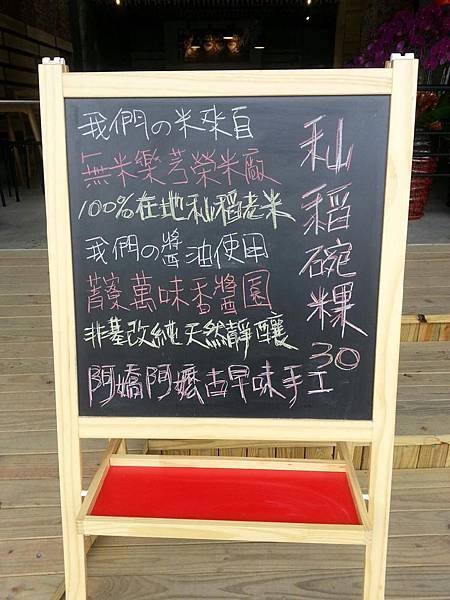 我們の米來自
無米樂芳榮米廠
100%在地秈稻老米
我們の醬油使用
菁寮萬味香醬園
非基改純天然靜釀
阿嬌阿嬤古早味手工
秈稻碗粿30